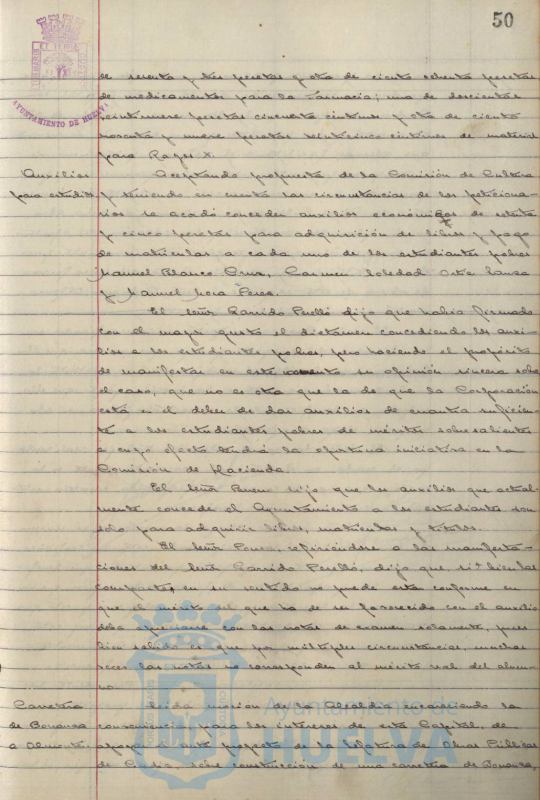 50
AYUNTAMIENTO DE HUELVA
de sesenta y tres pesetas y otra de ciento ochenta pesetas
de medicamentos para la Farmacia; una de doscientas
veintinueve pesetas cincuenta céntimos y otra de ciento
noventa y nueve pesetas veinticinco céntimos de material
para Rayos X.
Auxilios
para estudios
Aceptando propuesta de la Comisión de Cultura
y teniendo en cuenta las circunstancias de los peticiona-
rios se acordó conceder auxilios económicos de setenta
y cinco pesetas para adquisición de libros y pago
de matrículas a cada uno de los estudiantes pobres
Manuel Blanco Cruz, Carmen Soledad Ortiz
y Manuel Mora Perea.
El señor Garrido Perelló dijo que había firmado
con el mayor gusto el dictamen concediendo los auxi-
lios a los estudiantes pobres, pero haciendo el propósito
de manifestar en este momento su opinión sincera sobre
el caso, que no es otra que la de que la Corporación
está en el deber de dar auxilios de cuantía suficien-
te a los estudiantes pobres de méritos sobresalientes
a cuyo efecto tendrá la oportuna iniciativa en la
Comisión de Hacienda.
El señor dijo que los auxilios que actual-
mente concede el Ayuntamiento a los estudiantes son
solo para adquirir libros, matrículas y títulos.
El señor Ponce, refiriéndose a las manifesta-
ciones del señor Garrido Perelló, dijo que, si bien las
comparte, en su sentido no puede estar conforme en
que el mérito del que ha de ser favorecido con el auxilio
deba apreciarse con las notas de examen solamente, pues
bien sabido es que por múltiples circunstancias, muchas
veces las notas no corresponden al mérito real del alum-
no.
Carretera
de Bonanza
a Almonte.
Leída moción de la Alcaldía encareciendo la
conveniencia para los intereses de esta Capital, de
apoyar el ante proyecto de la Jefatura de Obras Públicas
de Cádiz, sobre construcción de una carretera de Bonanza,
Ayuntamiento de
HUELVA